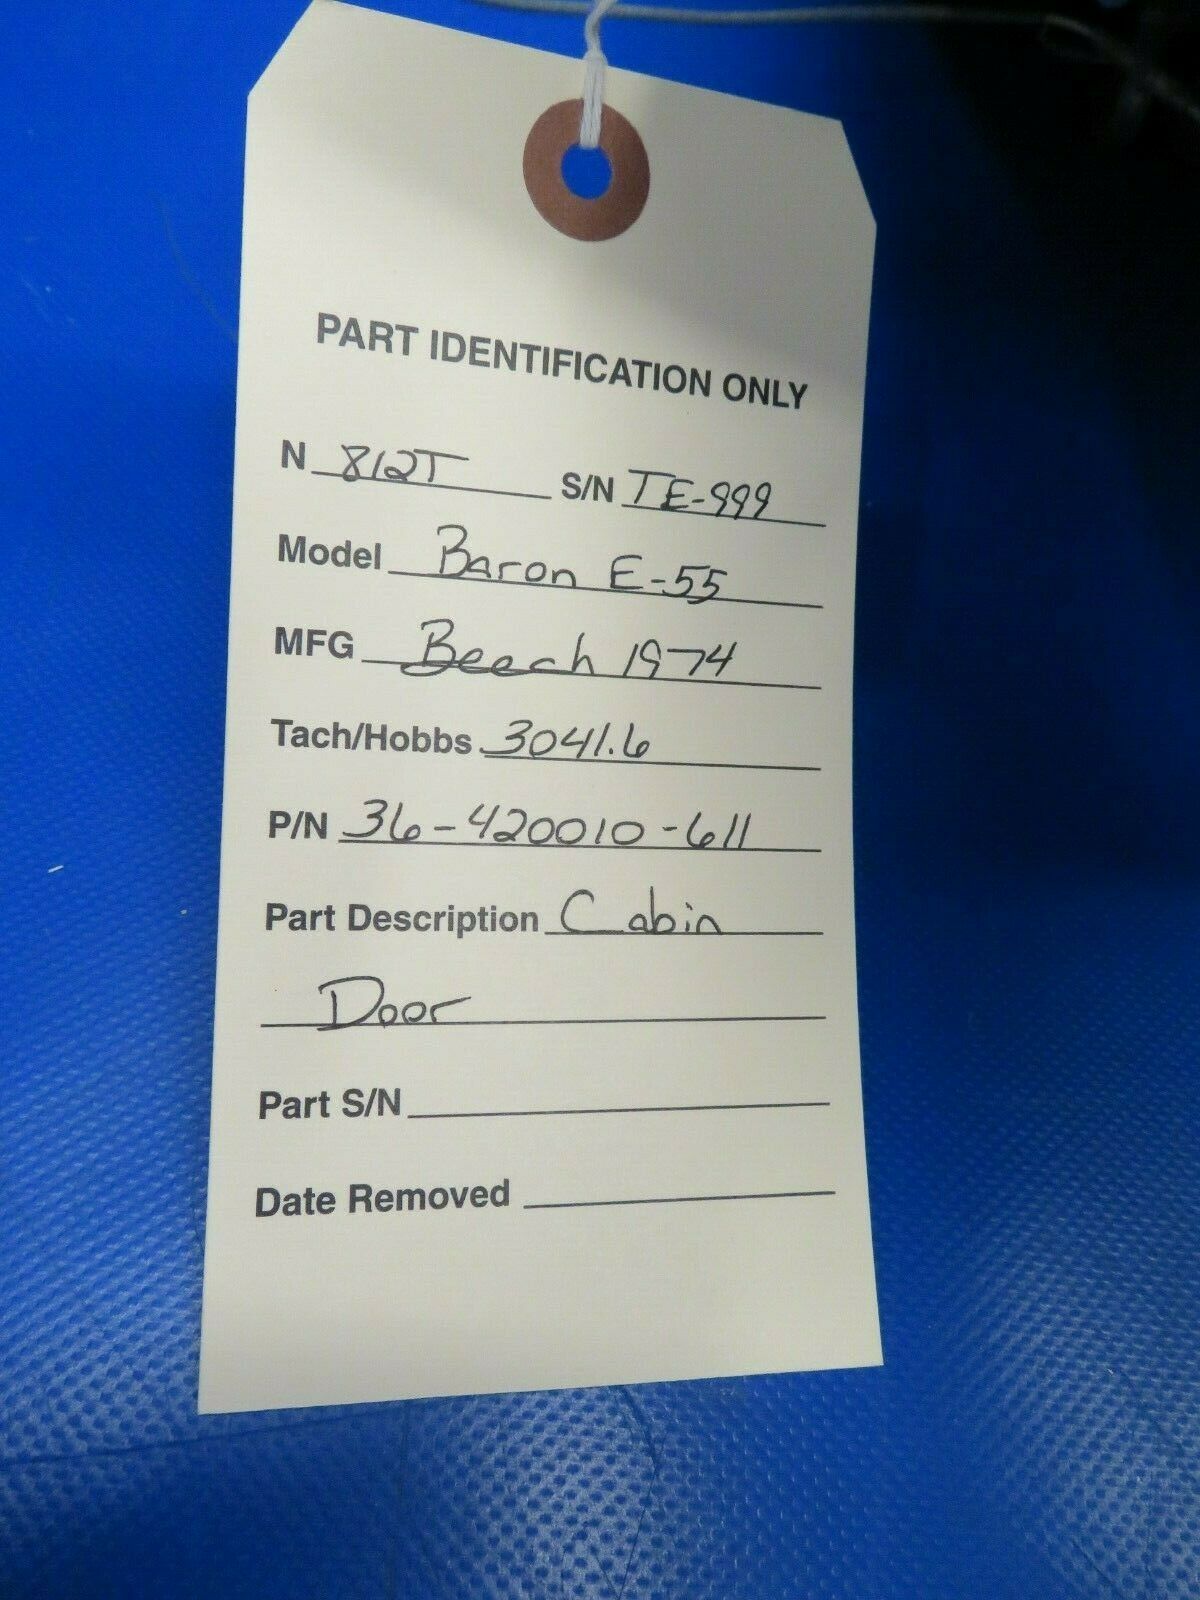 PART IDENTIFICATION ONLY
N 812T S/N TE-999
Model Baron E-55
MFG Beech 1974
Tach/Hobbs 3041.6
P/N 36-420010-611
Part Description Cabin
Door
Part S/N
Date Removed